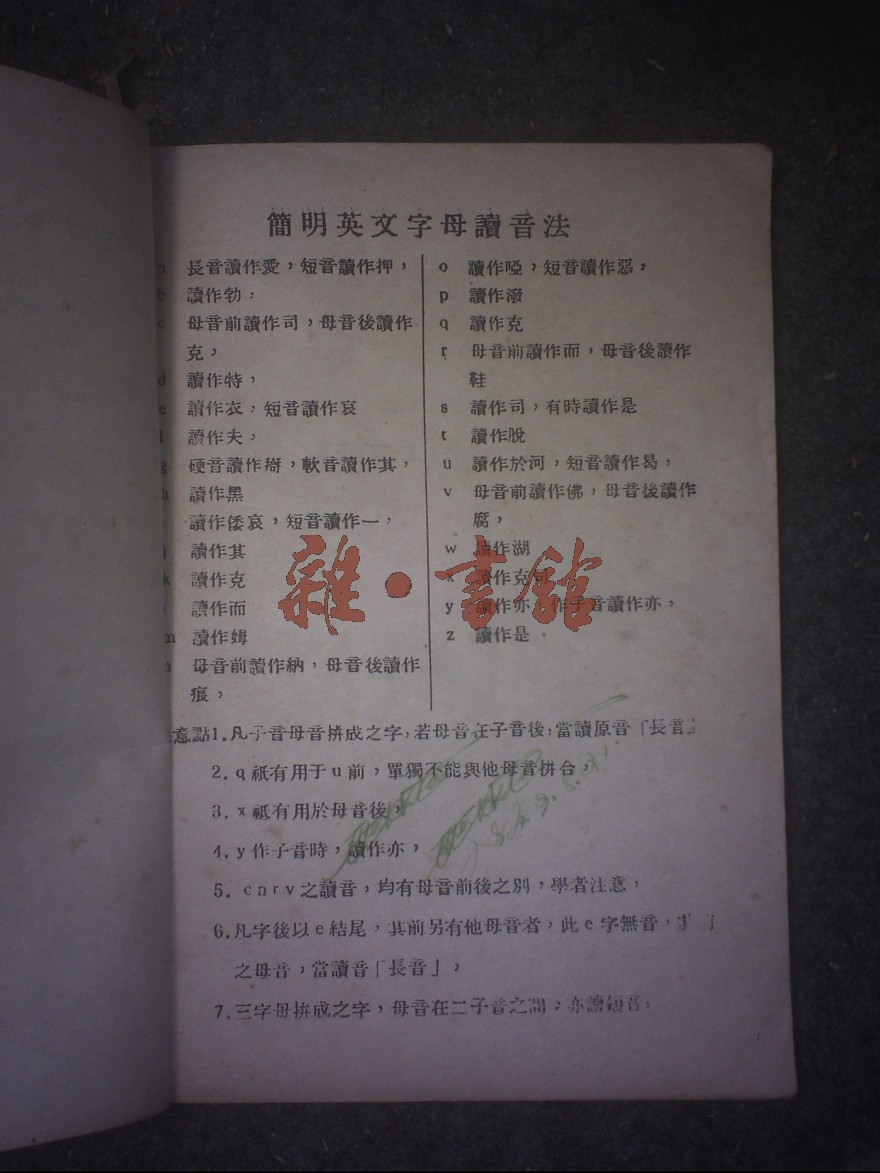 簡明英文字母讀音法
長音讀作愛，短音讀作押，
讀作勃，
c 母音前讀作司，母音後讀作
克，
d 讀作特，
e 讀作衣，短音讀作哀
f 讀作夫，
g 硬音讀作掰，軟音讀作其，
h 讀作黑
讀作倭哀，短音讀作一，
j 讀作其
k 讀作克
讀作而
m 讀作姆
n 母音前讀作納，母音後讀作
痕，
o 讀作啞，短音讀作惡，
p 讀作潑
q 讀作克
r 母音前讀作而，母音後讀作
鞋
s 讀作司，有時讀作是
t 讀作脫
u 讀作於河，短音讀作曷，
v 母音前讀作佛，母音後讀作
腐，
w 讀作湖
x 讀作克司
y 讀作亦，作子音讀作亦，
z 讀作是
雜·書館
意點1.凡子音母音拼成之字，若母音在子音後，當讀原音「長音」
2.q祇有用于u前，單獨不能與他母音拼合，
3.x祇有用於母音後，
4.y作子音時，讀作亦，
5.cnrv之讀音，均有母音前後之別，學者注意，
6.凡字後以e結尾，其前另有他母音者，此e字無音，
之母音，當讀音「長音」，
7.三字母拼成之字，母音在二子音之間，亦讀短音，